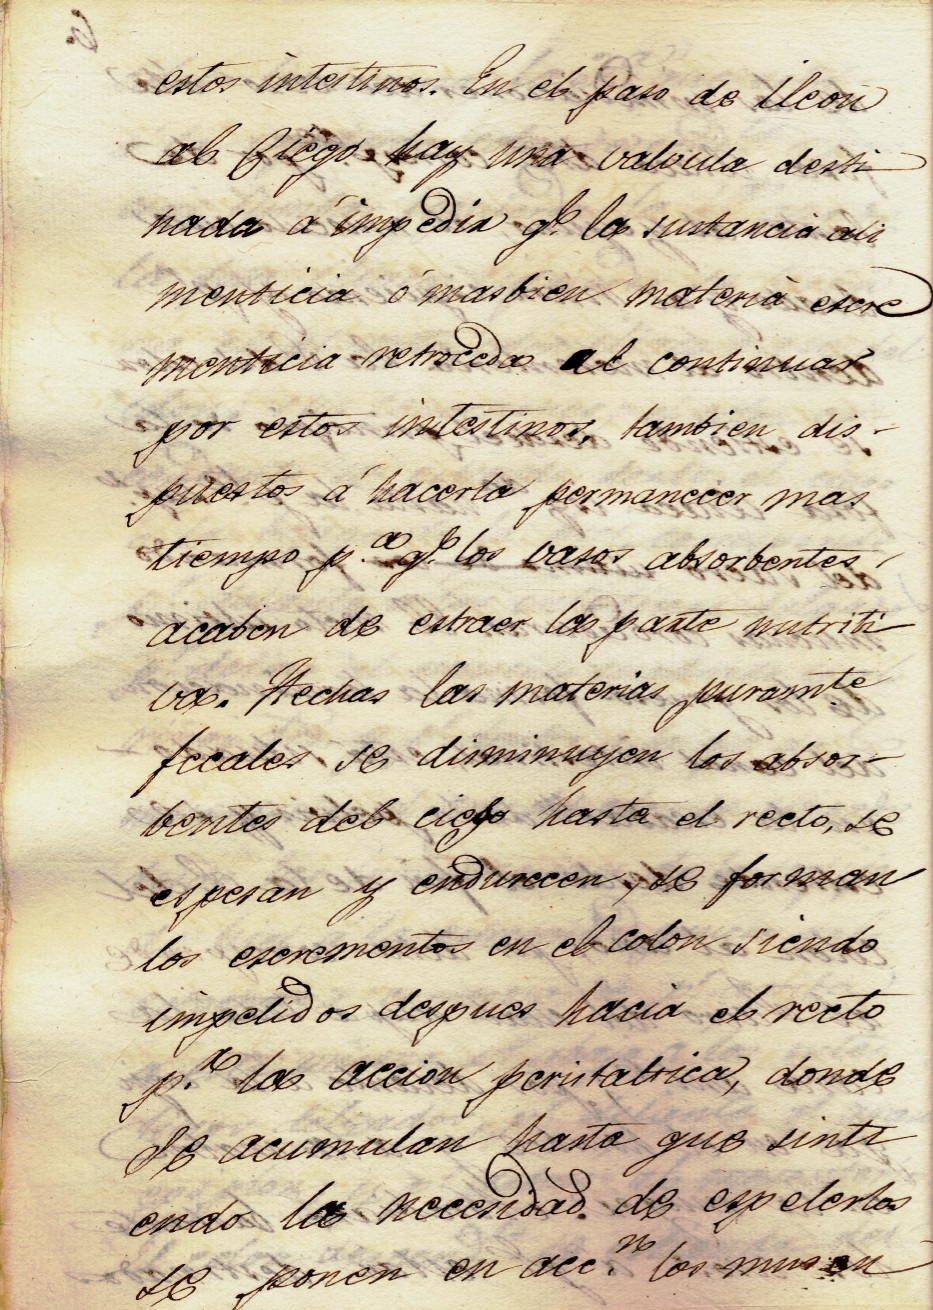 estos intestinos. En el paso de ileon
al ciego hay una valvula desti
nada á impedir qe. la sustancia ali
menticia ó masbien materia escre
menticia retroceda al continuar
por estos intestinos, tambien dis-
puestos á hacerla permanecer mas
tiempo p.a qe. los vasos absorbentes
acaben de estraer la parte nutriti
va. Hechas las materias puramte
fecales se disminuyen los absor-
bentes del ciego hasta el recto, se
espesan y endurecen, se forman
los escrementos en el colon siendo
impelidos despues hacia el recto
p.r la accion peristaltica, donde
se acumulan hasta que sinti
endo la necesidad de espelerlos
se ponen en acc.n los